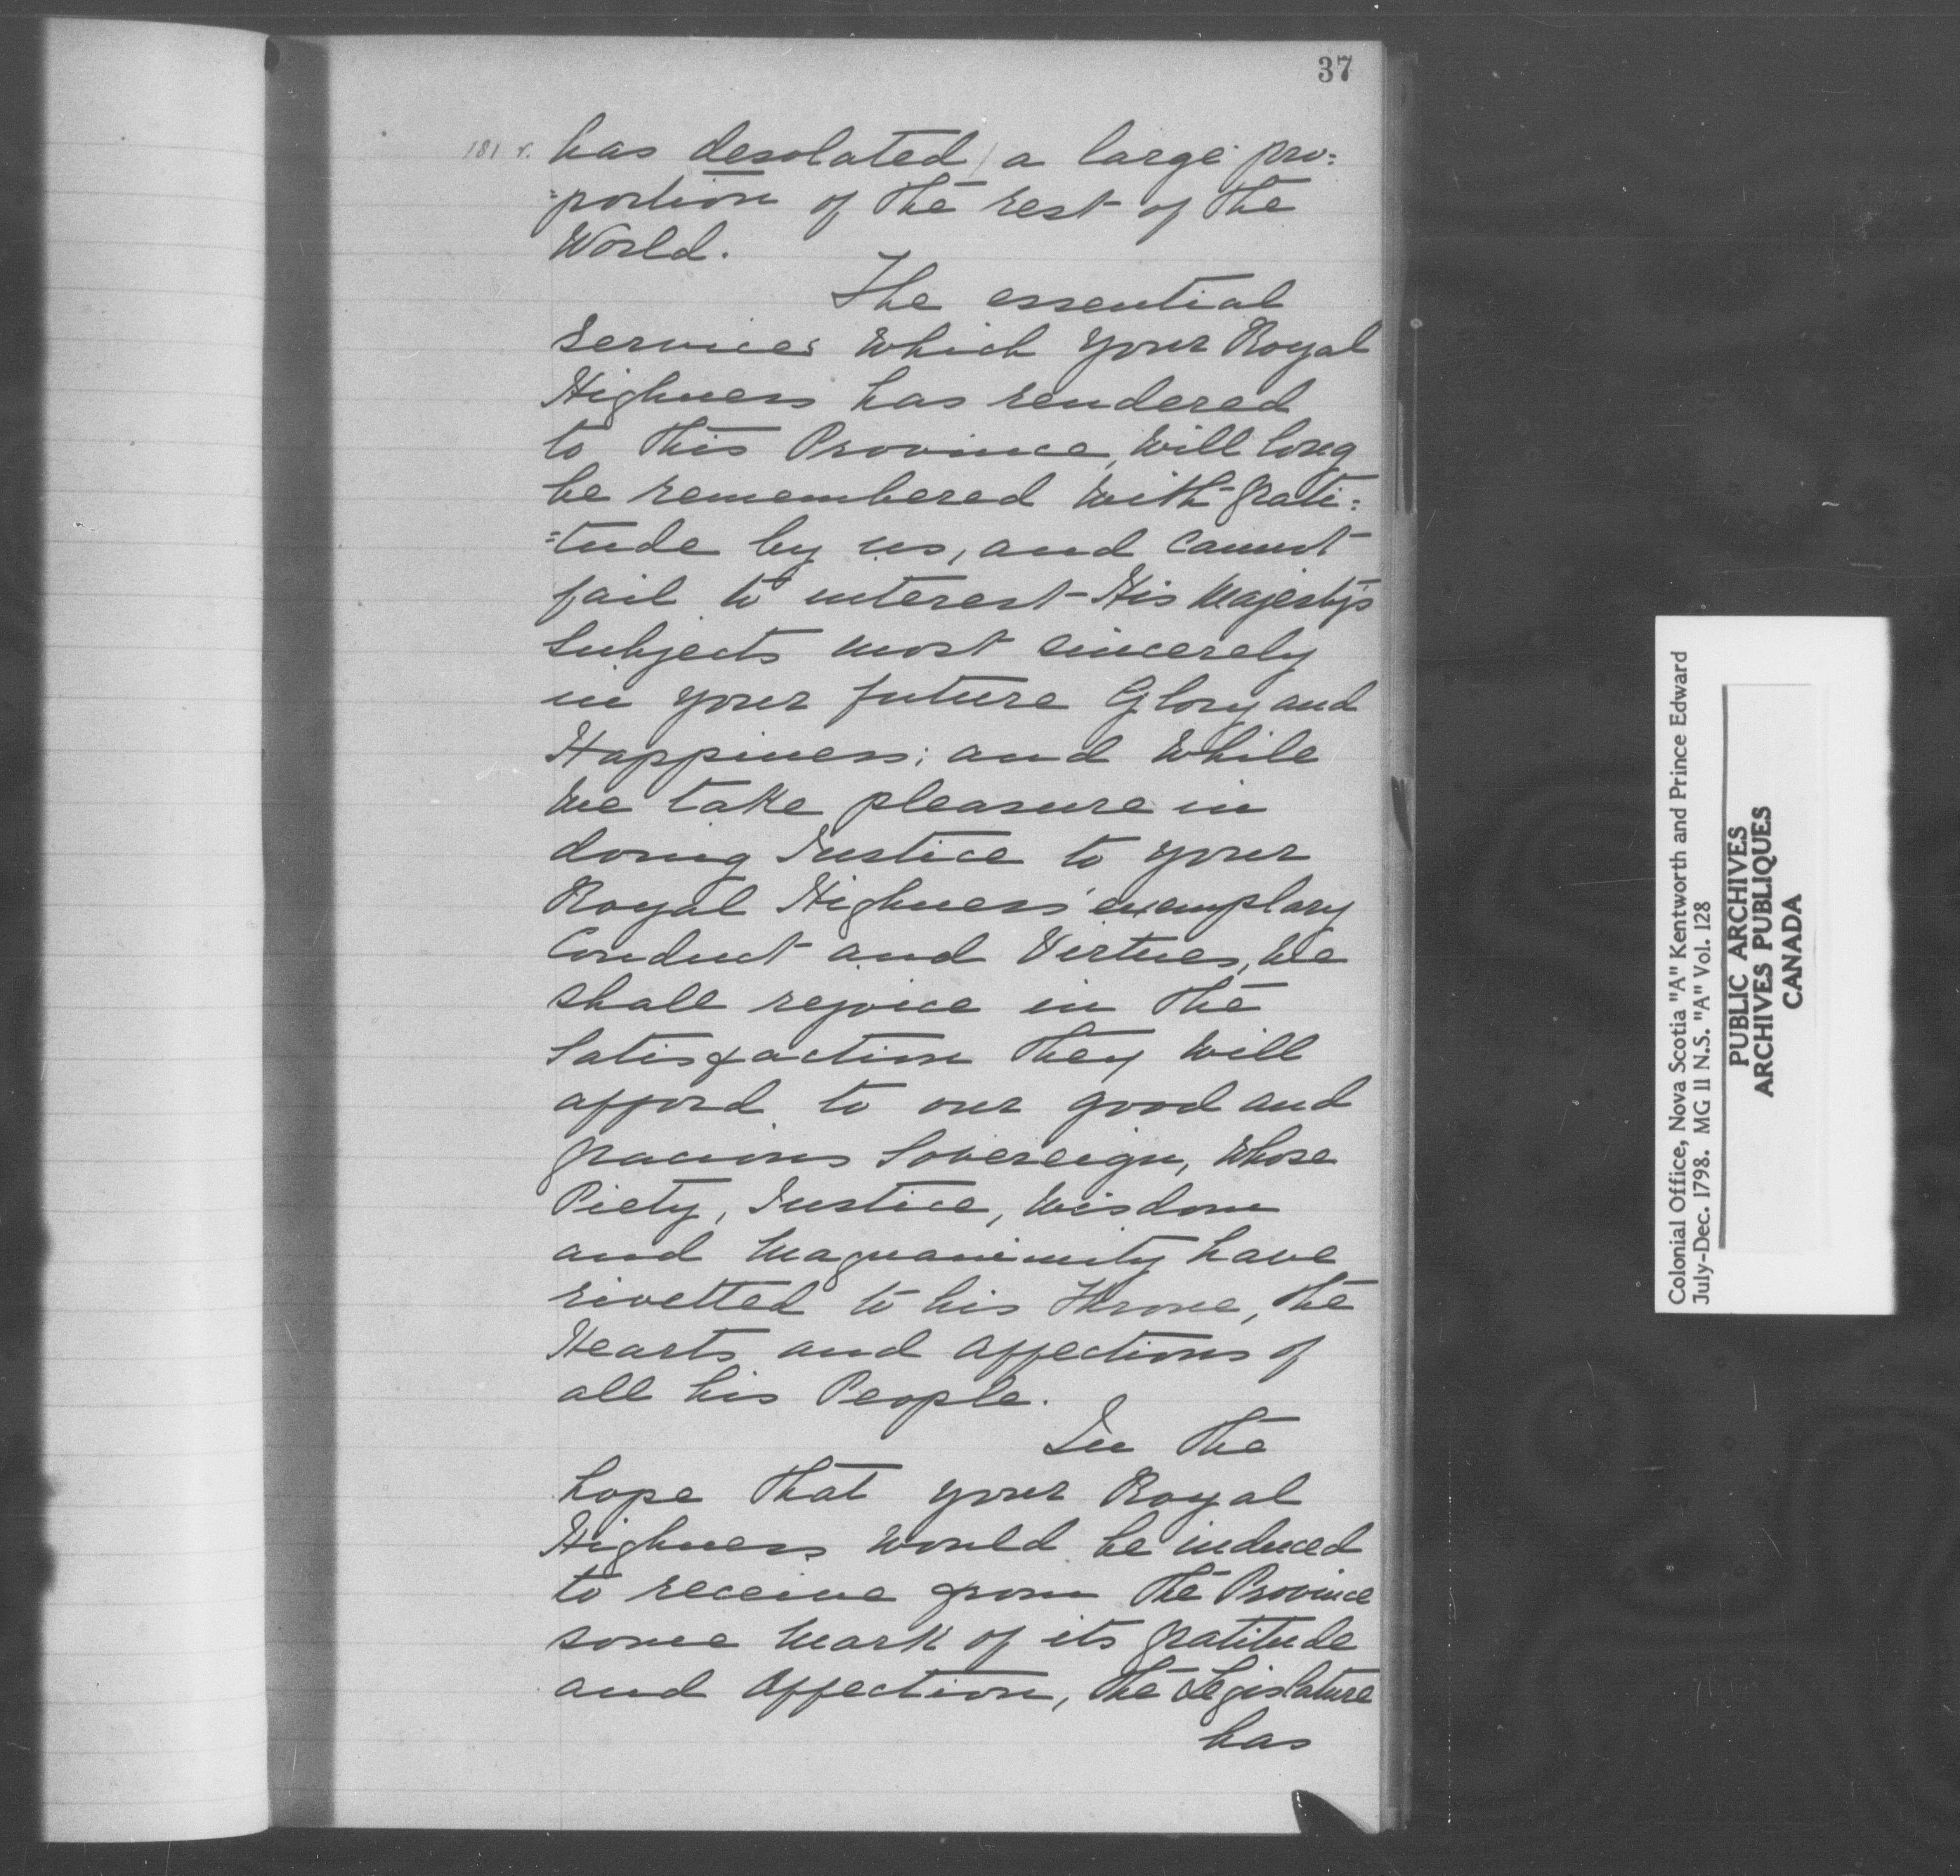 37
181 v. has desolated / a large pro:
=portion of the rest of the
World.
The essential
Services which your Royal
Highness has rendered
to this Province, will long
be remembered with grati:
=tude by us, and cannot
fail to interest His Majesty's
Subjects most sincerely
in your future Glory and
Happiness; and while
we take pleasure in
doing Justice to your
Royal Highness' exemplary
Conduct and Virtues, We
shall rejoice in the
Satisfaction they will
afford to our good and
gracious Sovereign, whose
Piety, Justice, Wisdom
and Magnanimity have
rivetted to his Throne, the
Hearts and affections of
all his People.
In the
hope that your Royal
Highness would be induced
to receive from the Province
some mark of its gratitude
and affection, the Legislature
has
Colonial Office, Nova Scotia "A" Kentworth and Prince Edward
July-Dec. 1798. MG 11 N.S. "A" Vol. 128
PUBLIC ARCHIVES
ARCHIVES PUBLIQUES
CANADA